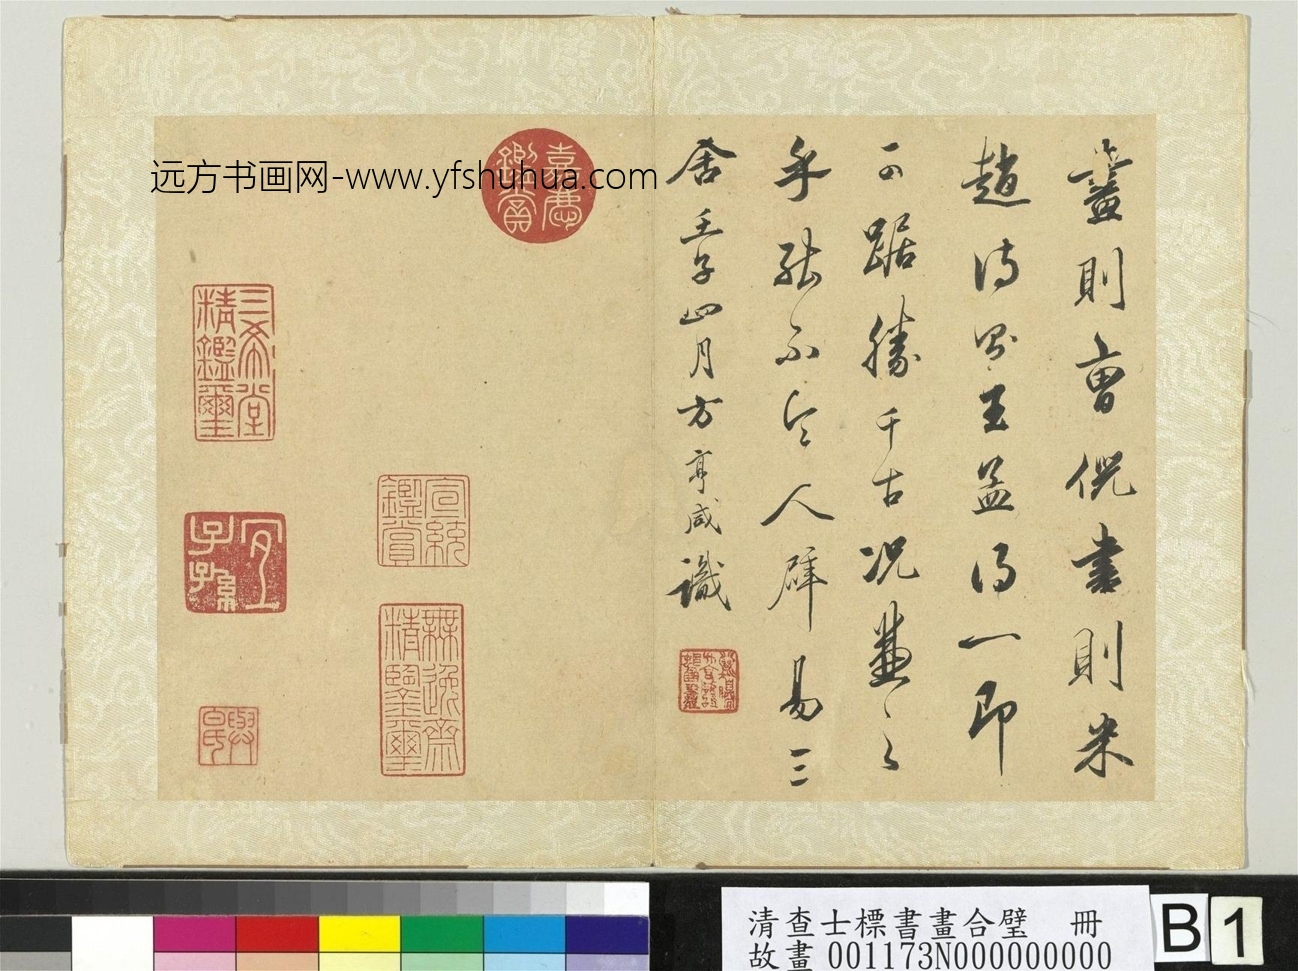 畫則曹倪書則米
趙得思王孟得一即
可踞勝千古況兼之
乎能不令人辟易三
舍壬子四月方亨咸識
嘉慶鑑賞
三希堂精鑑璽
宜子孫
宣統鑑賞
無逸齋精鑒璽
远方书画网-www.yfshuhua.com
清查士標書畫合璧 冊
故畫001173N000000000
B 1